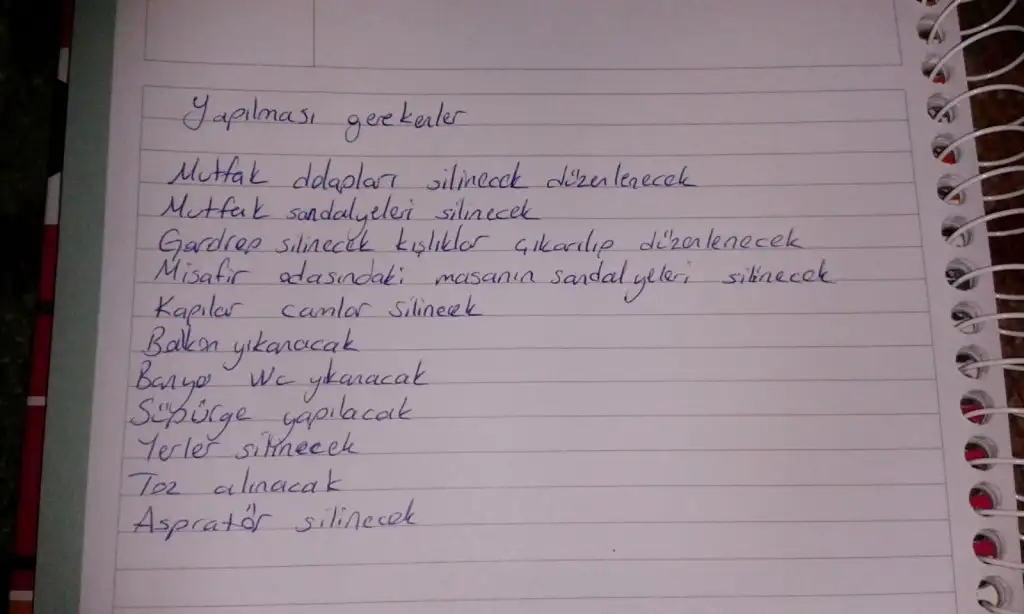 Yapılması gerekenler
Mutfak dolapları silinecek düzenlenecek
Mutfak sandalyeleri silinecek
Gardrop silinecek kışlıklar çıkarılıp düzenlenecek
Misafir odasındaki masanın sandalyeleri silinecek
Kapılar camlar silinecek
Balkon yıkanacak
Banyo Wc ykanacak
Süpürge yapılacak
Yerler silinecek
Toz alınacak
Aspratör silinecek